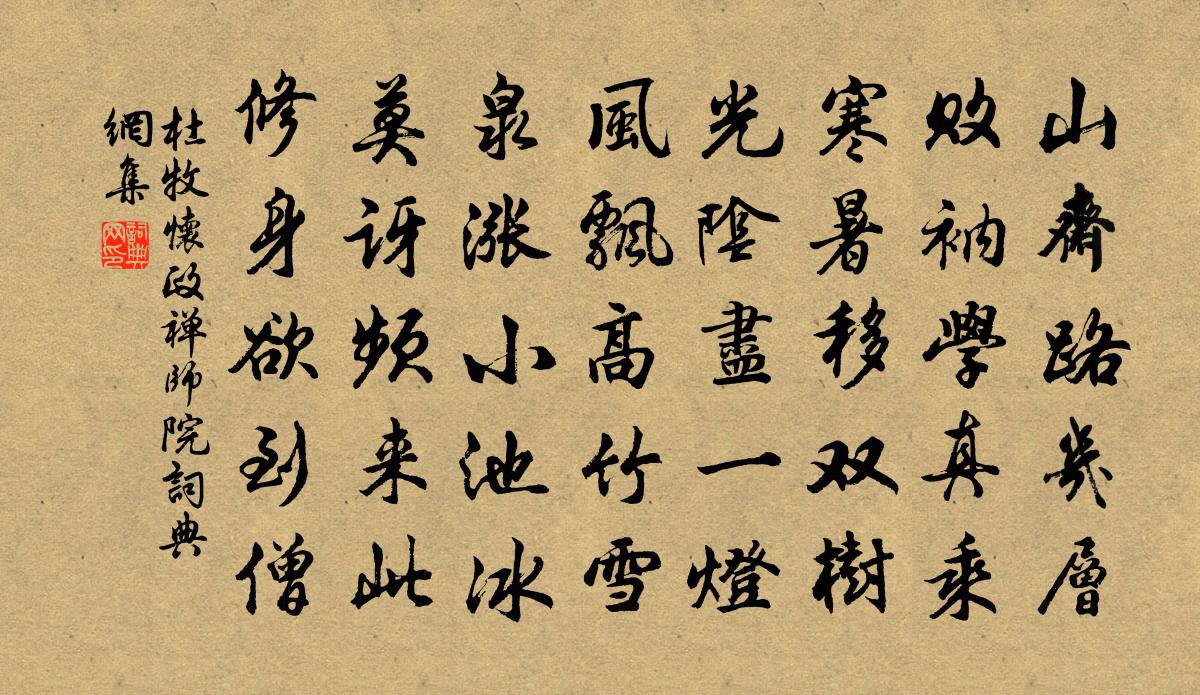 山齋路幾層
敗衲學真乘
寒暑移双樹
光陰盡一燈
風飄高竹雪
泉漲小池冰
莫訝頻来此
修身欲到僧
杜牧懷政禅師院詞典
網集
詞典
网印